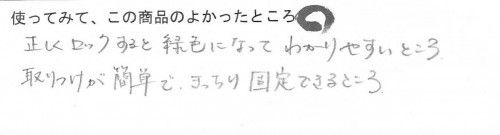 使ってみて、この商品のよかったところ
正しくロックすると緑色になってわかりやすいところ
取りつけが簡単で、きっちり固定できるところ